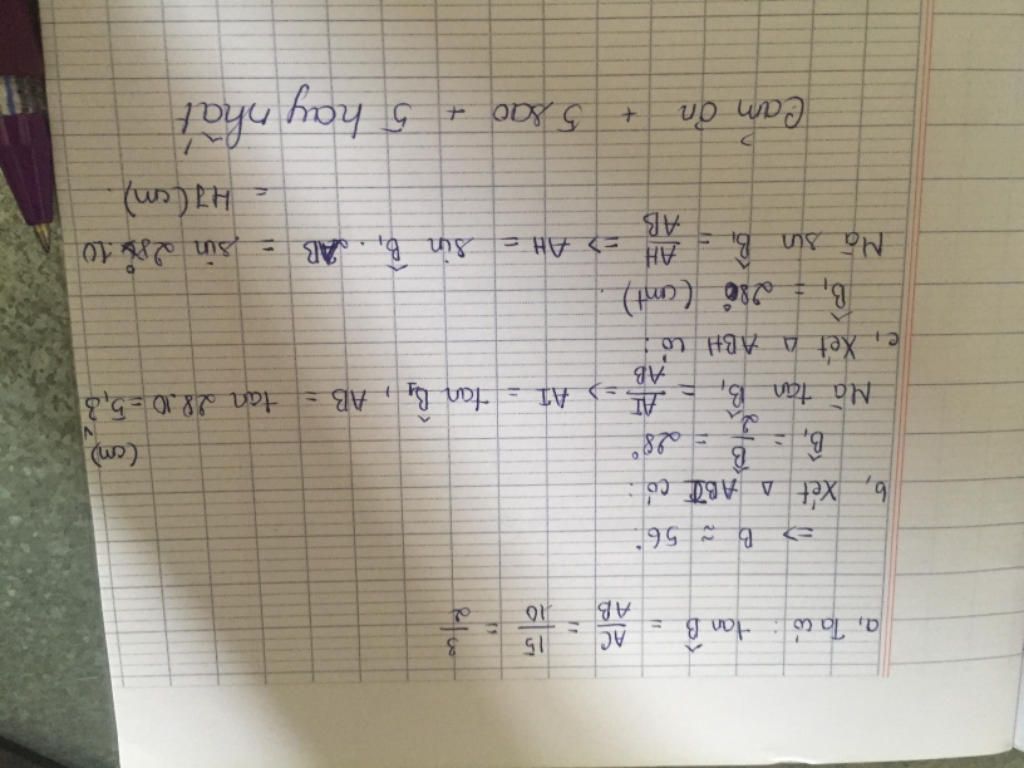 a, Ta có: tan B̂ = AC/AB = 15/10 = 3/2
=> B ≈ 56°
b, Xét Δ ABI có:
B̂₁ = B̂/2 = 28°
Mà tan B̂₁ = AI/AB => AI = tan B̂₁, AB = tan 28.10 = 5,3 (cm)
c, Xét Δ ABH có:
B̂₁ = 28° (cmt).
Mà sin B̂₁ = AH/AB => AH = sin B̂₁. AB = sin 28°.10
= 4,7 (cm).
Cảm ơn + 5 sao + 5 hay nhất